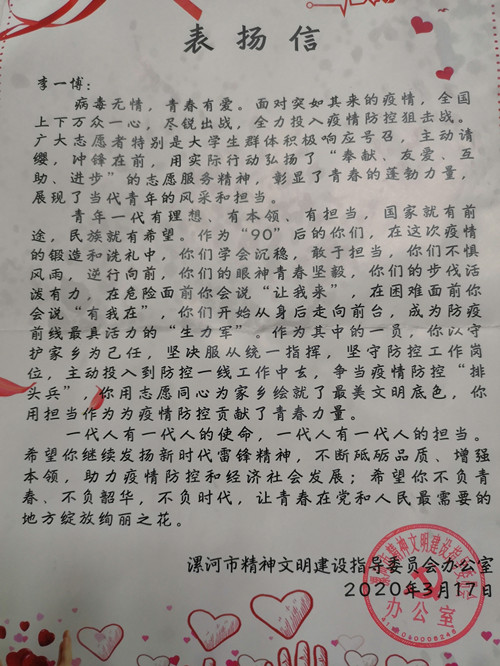 表扬信
李一博：
病毒无情，青春有爱。面对突如其来的疫情，全国
上下万众一心，尽锐出战，全力投入疫情防控狙击战。
广大志愿者特别是大学生群体积极响应号召，主动请
缨，冲锋在前，用实际行动弘扬了“奉献、友爱、互
助、进步”的志愿服务精神，彰显了青春的蓬勃力量，
展现了当代青年的风采和担当。
青年一代有理想、有本领、有担当，国家就有前
途，民族就有希望。作为“90”后的你们，在这次疫情
的锻造和洗礼中，你们学会沉稳，敢于担当，你们不惧
风雨，逆行向前，你们的眼神青春坚毅，你们的步伐活
泼有力，在危险面前你会说“让我来”，在困难面前你
会说“有我在”，你们开始从身后走向前台，成为防疫
前线最具活力的“生力军”。作为其中的一员，你以守
护家乡为己任，坚决服从统一指挥，坚守防控工作岗
位，主动投入到防控一线工作中去，争当疫情防控“排
头兵”，你用志愿同心为家乡绘就了最美文明底色，你
用担当作为为疫情防控贡献了青春力量。
一代人有一代人的使命，一代人有一代人的担当。
希望你继续发扬新时代雷锋精神，不断砥砺品质、增强
本领，助力疫情防控和经济社会发展；希望你不负青
春、不负韶华，不负时代，让青春在党和人民最需要的
地方绽放绚丽之花。
漯河市精神文明建设指导委员会办公室
2020年3月17日
办公室